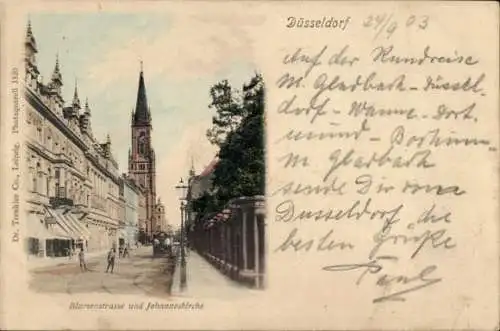 Dr. Trenkler Co., Leipzig. Photoaquarell 1530
Düsseldorf 24/9 03
Auf der Rundreise
M Gladbach-Düssel-
dorf-Wanne-Dort
mund-Bochum
M Gladbach
sende Dir von
Düsseldorf die
besten Grüße
Paul
Blumenstrasse und Johanneskirche